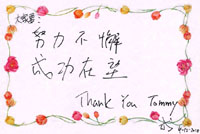 努力不懈
成功在望
Thank You Tommy